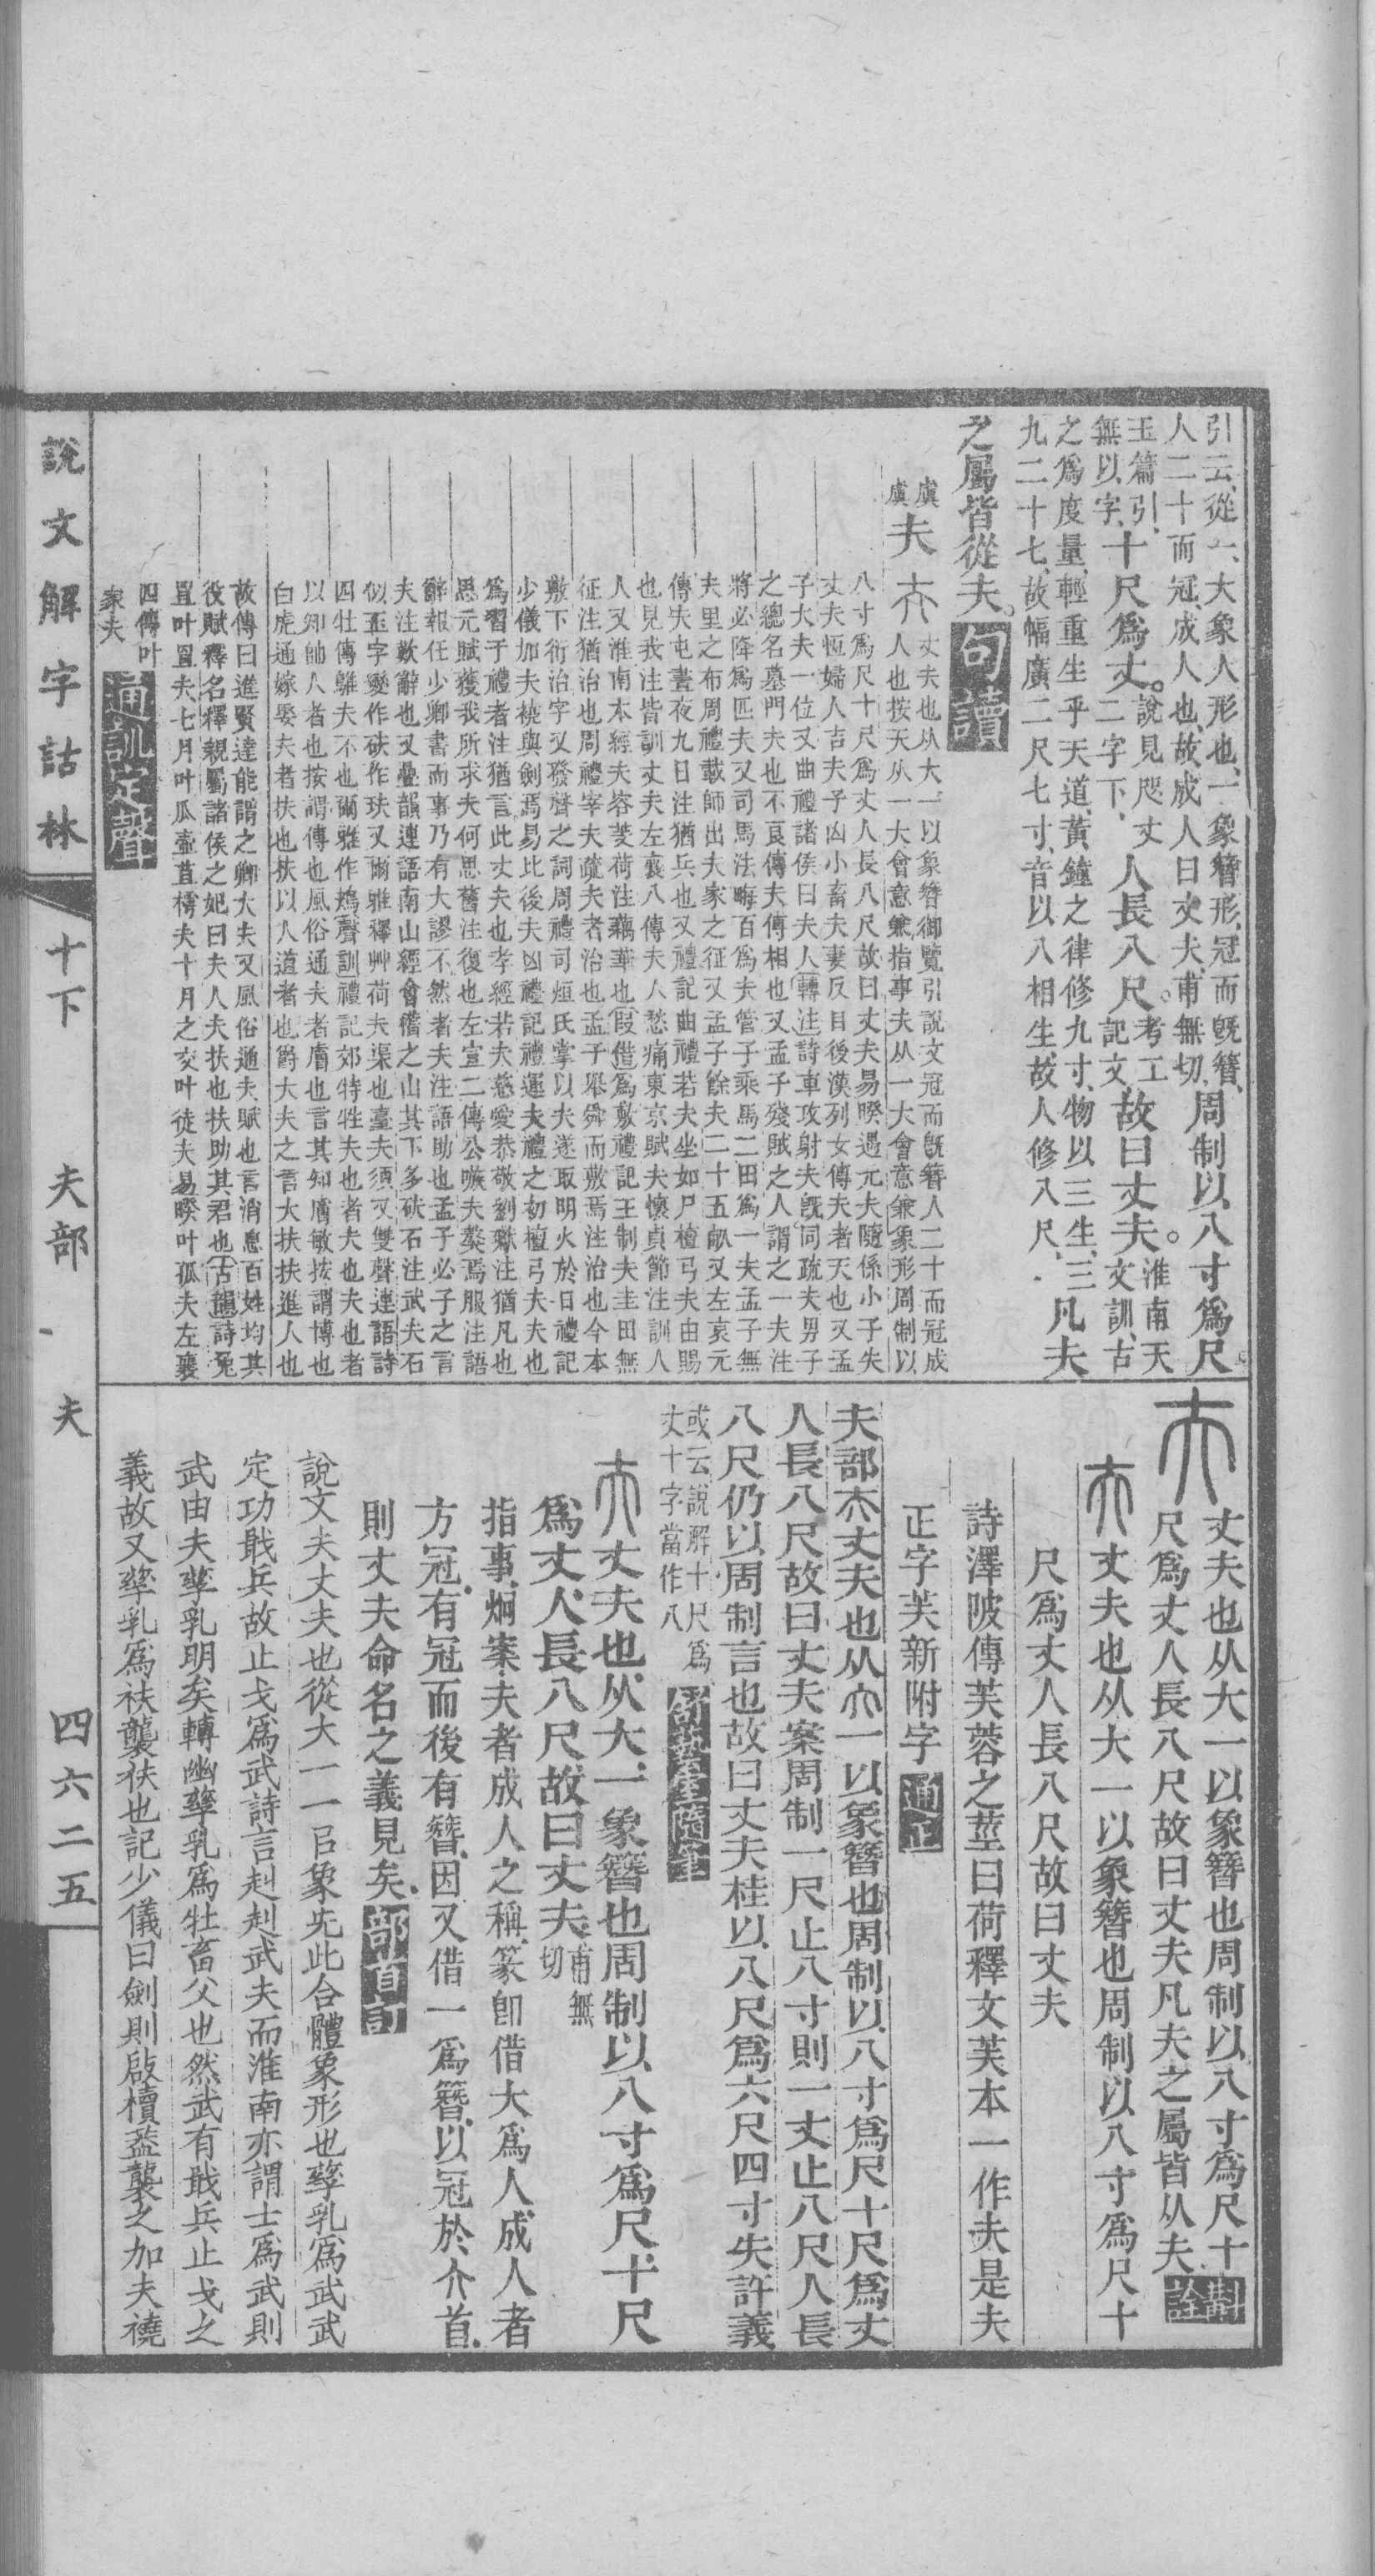 引云、從一、大象人形也、一象簪形、冠而旣簪、
人二十而冠、成人也、故成人曰丈夫、甫無切、
周制以八寸爲尺。
玉篇引、
無以字、
十尺爲丈。
說見咫丈
二字下、
人長八尺。
考工
記文、
故曰丈夫。
淮南天
文訓、古
之爲度量、輕重生乎天道、黃鐘之律修九寸、物以三生、三
九二十七、故幅廣二尺七寸、音以八相生、故人修八尺、
凡夫
之屬皆從夫。句讀
虞
虞
夫
丈夫也从大一以象簪御覽引說文冠而旣簪人二十而冠成
人也按天从一大會意兼指事夫从一大會意兼象形周制以
八寸爲尺十尺爲丈人長八尺故曰丈夫易睽遇元夫隨係小子失
丈夫恆婦人吉夫子凶小畜夫妻反目後漢列女傳夫者天也又孟
子大夫一位又曲禮諸侯曰夫人轉注詩車攻射夫旣同疏夫男子
之總名墓門夫也不良傳夫傳相也又孟子殘賊之人謂之一夫注
將必降爲匹夫又司馬法晦百爲夫管子乘馬二田爲一夫孟子無
夫里之布周禮載師出夫家之征又孟子餘夫二十五畝又左哀元
傳夫屯晝夜九日注猶兵也又禮記曲禮若夫坐如尸檀弓夫由賜
也見我注皆訓丈夫左襄八傳夫人愁痛東京賦夫懷貞節注訓人
人又淮南本經夫容芰荷注藕華也假借爲敷禮記王制夫圭田無
征注猶治也周禮宰夫疏夫者治也孟子舉舜而敷焉注治也今本
敷下衍治字又發聲之詞周禮司烜氏掌以夫遂取明火於日禮記
少儀加夫橈與劍焉易比後夫凶禮記禮運夫禮之初檀弓夫夫也
爲習于禮者注猶言此丈夫也孝經若夫慈愛恭敬劉瓛注猶凡也
思元賦獲我所求夫何思舊注復也左宣二傳公嗾夫獒焉服注語
辭報任少卿書而事乃有大謬不然者夫注語助也孟子必子之言
夫注歎辭也又疊韻連語南山經會稽之山其下多砆石注武夫石
似玉字變作砆作玞又爾雅釋艸荷夫渠也臺夫須又雙聲連語詩
四牡傳鵻夫不也爾雅作鳺聲訓禮記郊特牲夫也者夫也夫也者
以知帥人者也按謂傅也風俗通夫者膚也言其知膚敏按謂博也
白虎通嫁娶夫者扶也扶以人道者也爵大夫之言大扶扶進人也
故傳曰進賢達能謂之卿大夫又風俗通夫賦也言消息百姓均其
役賦釋名釋親屬諸侯之妃曰夫人夫扶也扶助其君也古韻詩兔
罝叶罝夫七月叶瓜壺苴樗夫十月之交叶徒夫易睽叶孤夫左襄
四傳叶
家夫
通訓定聲
夫
丈夫也从大一以象簪也周制以八寸爲尺十
尺爲丈人長八尺故曰丈夫凡夫之屬皆从夫斠詮
夫
丈夫也从大一以象簪也周制以八寸爲尺十
尺爲丈人長八尺故曰丈夫
詩澤陂傳芙蓉之莖曰荷釋文芙本一作夫是夫
正字芙新附字通正
夫部夫丈夫也从大一以象簪也周制以八寸爲尺十尺爲丈
人長八尺故曰丈夫案周制一尺止八寸則一丈止八尺人長
八尺仍以周制言也故曰丈夫桂以八尺爲六尺四寸失許義
或云說解十尺爲
丈十字當作八
舒蓺室隨筆
夫
丈夫也从大一象簪也周制以八寸爲尺十尺
爲丈人長八尺故曰丈夫
甫無
切
指事炯案夫者成人之稱篆卽借大爲人成人者
方冠有冠而後有簪因又借一爲簪以冠於介首
則丈夫命名之義見矣部首訂
說文夫丈夫也從大一一㠯象兂此合體象形也孳乳爲武武
定功戢兵故止戈爲武詩言赳赳武夫而淮南亦謂士爲武則
武由夫孳乳明矣轉幽孳乳爲牡畜父也然武有戢兵止戈之
義故又孳乳爲袚襲袚也記少儀曰劍則啟櫝蓋襲之加夫襓
說文解字詁林
十下
夫部
夫
四六二五